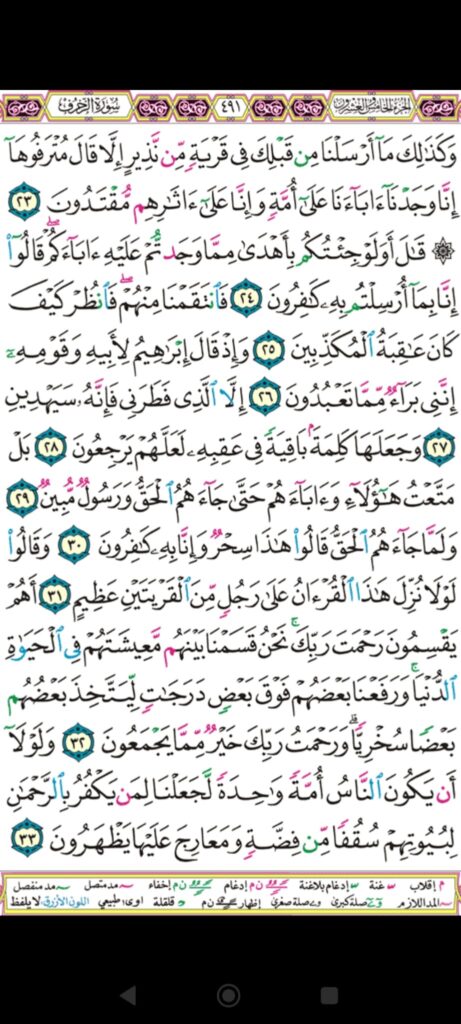 الجزء الخامس والعشرون ٤٩١ سورة الزخرف
وَكَذَٰلِكَ مَآ أَرْسَلْنَا مِن قَبْلِكَ فِى قَرْيَةٍ مِّن نَّذِيرٍ إِلَّا قَالَ مُتْرَفُوهَآ
إِنَّا وَجَدْنَآ ءَابَآءَنَا عَلَىٰٓ أُمَّةٍ وَإِنَّا عَلَىٰٓ ءَاثَٰرِهِم مُّقْتَدُونَ ٢٣
۞ قَٰلَ أَوَلَوْ جِئْتُكُم بِأَهْدَىٰ مِمَّا وَجَدتُّمْ عَلَيْهِ ءَابَآءَكُمْۖ قَالُوٓا۟
إِنَّا بِمَآ أُرْسِلْتُم بِهِۦ كَٰفِرُونَ ٢٤ فَٱنتَقَمْنَا مِنْهُمْۖ فَٱنظُرْ كَيْفَ
كَانَ عَٰقِبَةُ ٱلْمُكَذِّبِينَ ٢٥ وَإِذْ قَالَ إِبْرَٰهِيمُ لِأَبِيهِ وَقَوْمِهِۦٓ
إِنَّنِى بَرَآءٌ مِّمَّا تَعْبُدُونَ ٢٦ إِلَّا ٱلَّذِى فَطَرَنِى فَإِنَّهُۥ سَيَهْدِينِ
٢٧ وَجَعَلَهَا كَلِمَةًۢ بَاقِيَةً فِى عَقِبِهِۦ لَعَلَّهُمْ يَرْجِعُونَ ٢٨ بَلْ
مَتَّعْتُ هَٰٓؤُلَآءِ وَءَابَآءَهُمْ حَتَّىٰ جَآءَهُمُ ٱلْحَقُّ وَرَسُولٌ مُّبِينٌ ٢٩
وَلَمَّا جَآءَهُمُ ٱلْحَقُّ قَالُوا۟ هَٰذَا سِحْرٌ وَإِنَّا بِهِۦ كَٰفِرُونَ ٣٠ وَقَالُوا۟
لَوْلَا نُزِّلَ هَٰذَا ٱلْقُرْءَانُ عَلَىٰ رَجُلٍ مِّنَ ٱلْقَرْيَتَيْنِ عَظِيمٍ ٣١ أَهُمْ
يَقْسِمُونَ رَحْمَتَ رَبِّكَۚ نَحْنُ قَسَمْنَا بَيْنَهُم مَّعِيشَتَهُمْ فِى ٱلْحَيَوٰةِ
ٱلدُّنْيَاۚ وَرَفَعْنَا بَعْضَهُمْ فَوْقَ بَعْضٍ دَرَجَٰتٍ لِّيَتَّخِذَ بَعْضُهُم
بَعْضًا سُخْرِيًّاۗ وَرَحْمَتُ رَبِّكَ خَيْرٌ مِّمَّا يَجْمَعُونَ ٣٢ وَلَوْلَآ
أَن يَكُونَ ٱلنَّاسُ أُمَّةً وَٰحِدَةً لَّجَعَلْنَا لِمَن يَكْفُرُ بِٱلرَّحْمَٰنِ
لِبُيُوتِهِمْ سُقُفًا مِّن فِضَّةٍ وَمَعَارِجَ عَلَيْهَا يَظْهَرُونَ ٣٣
م إقلاب غنة إدغام بلاغنة ن م إدغام ن م إخفاء مد متصل مد منفصل
المد اللازم صلة كبرى صلة صغرى إظهار ن م قلقلة اوى؛ طبيعي اللون الأزرق: لا يلفظ